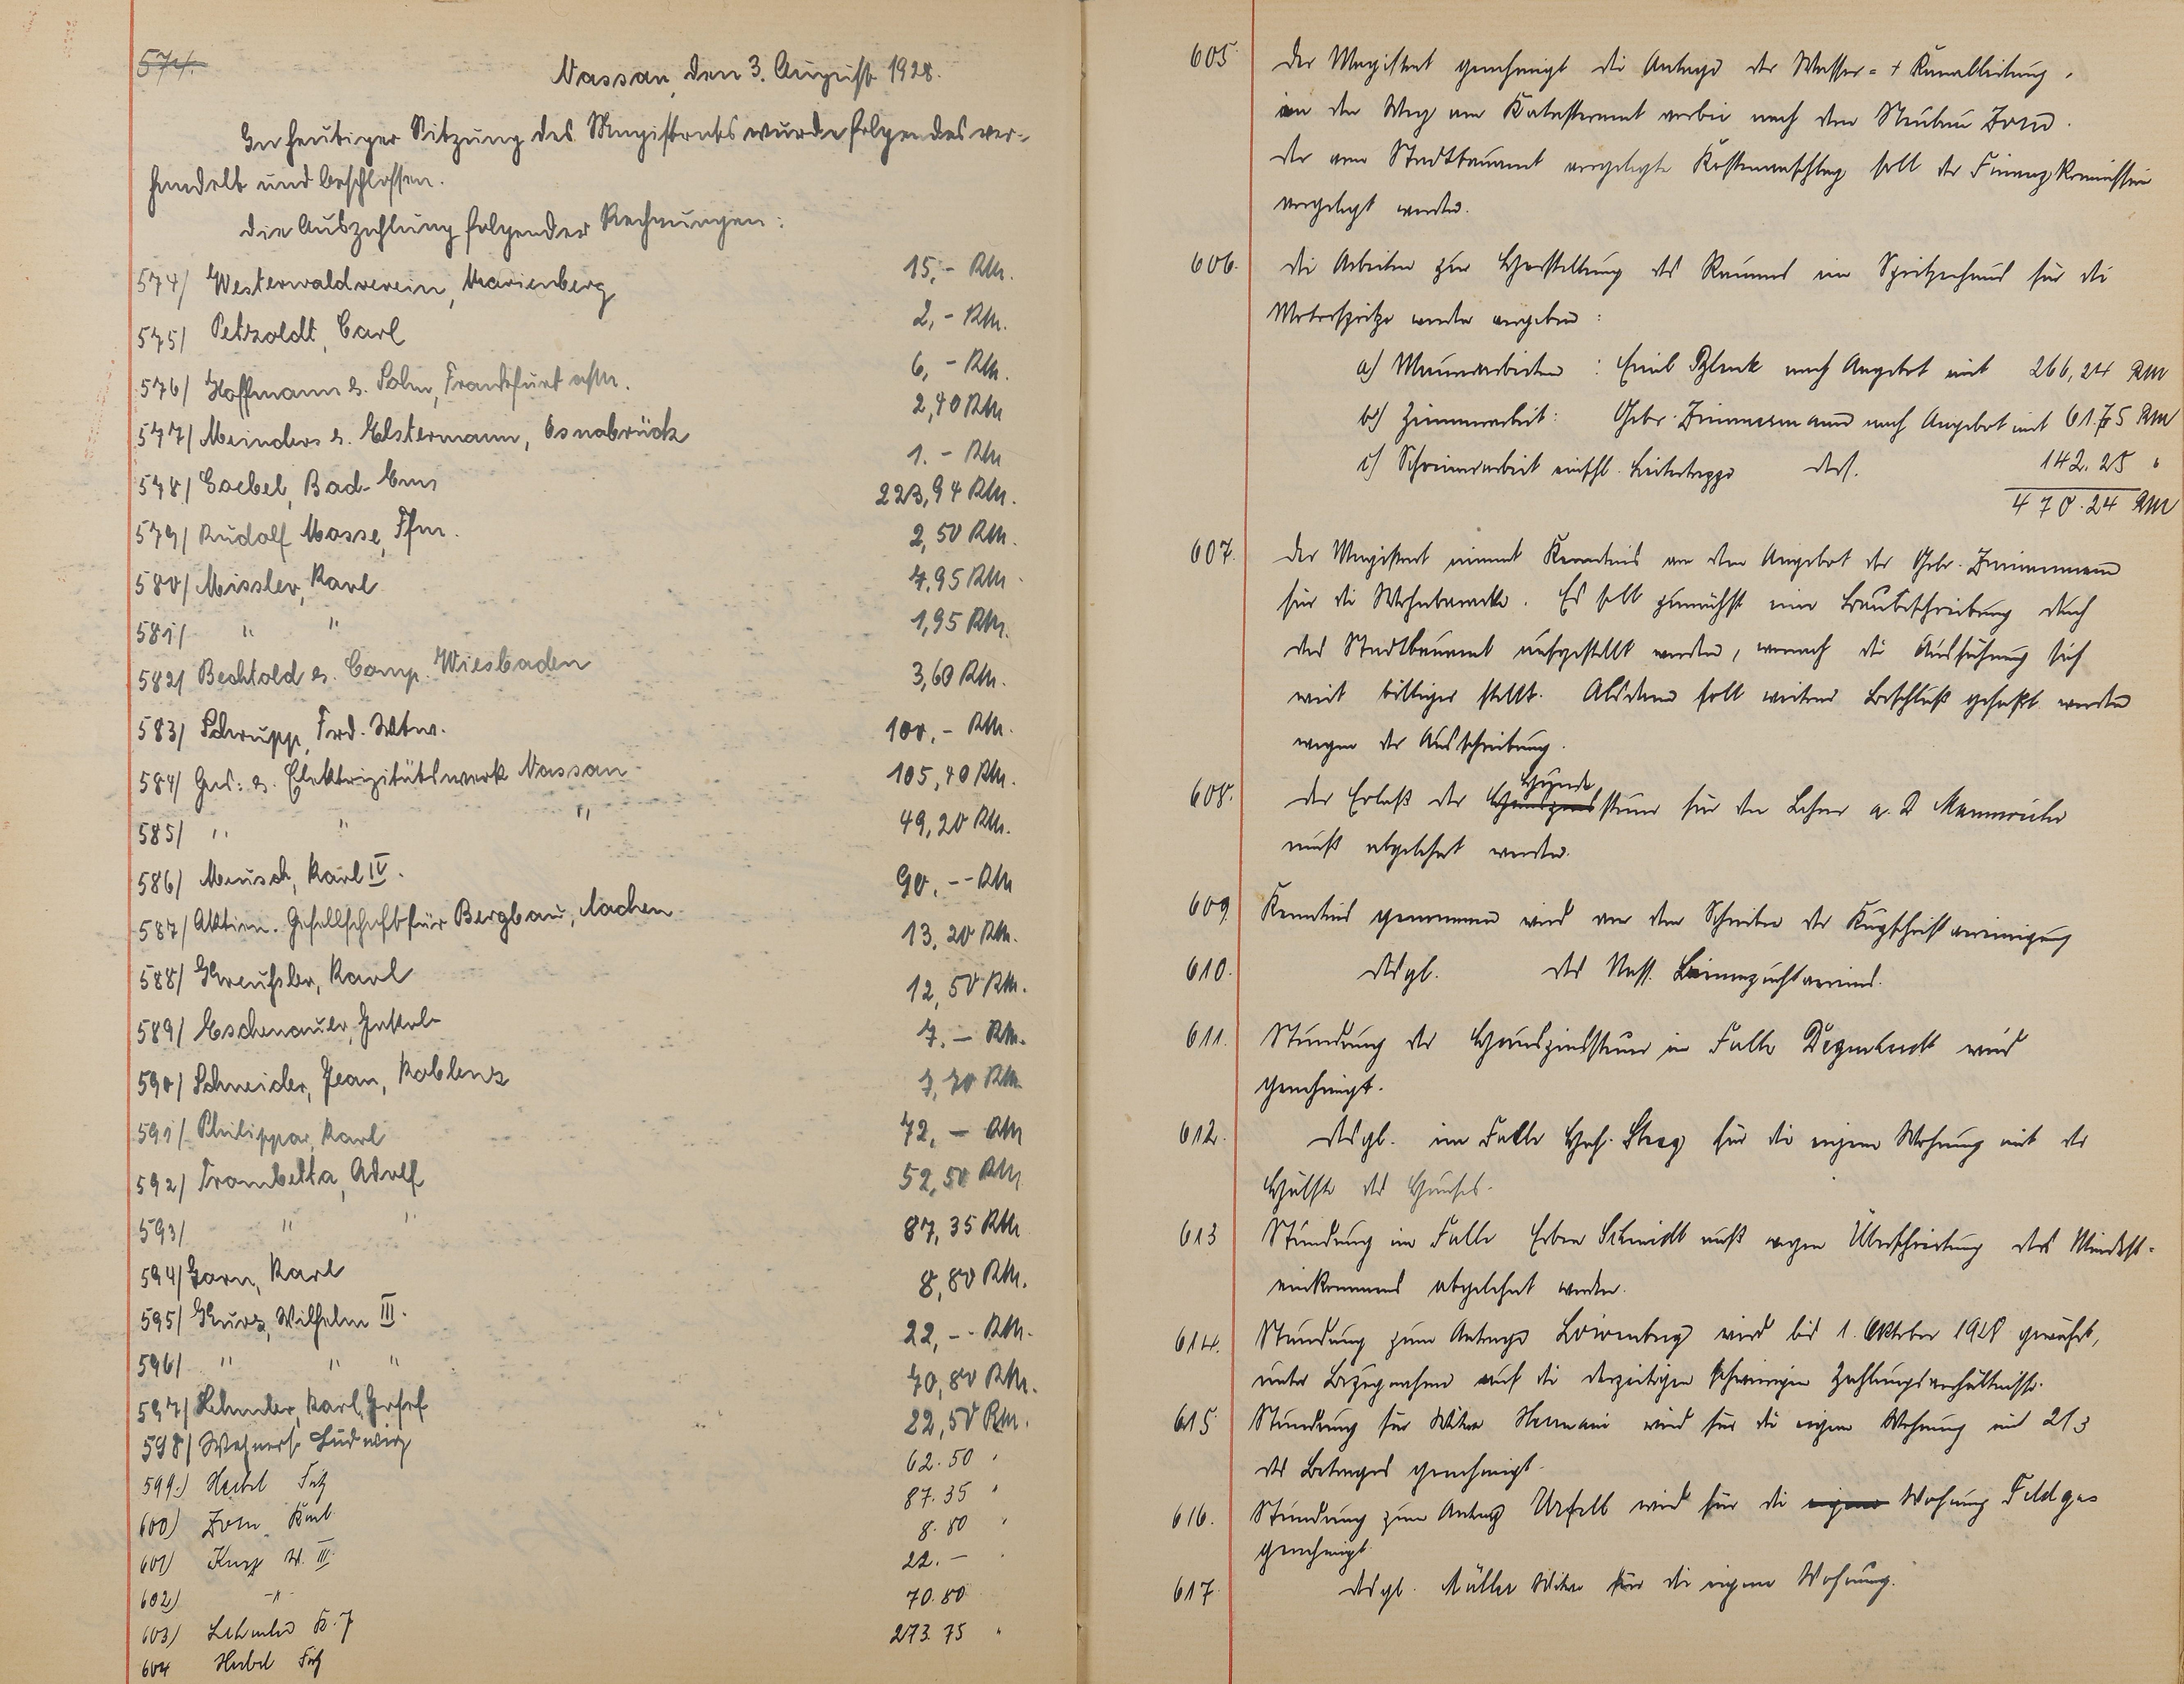 574.
Nassau, den 3. August 1928.
In heutiger Sitzung des Magistrats wurde folgendes ver-
handelt und beschlossen.
Die Auszahlung folgender Rechnungen:
574/ Westerwaldverein, Marienberg 15,- RM.
575/ Petzoldt, Carl 2,- RM.
576/ Hoffmann & Sohn, Frankfurt a/M. 6,- RM.
577/ Meinders & Elstermann, Osnabrück 2,40 RM
578/ Goebel, Bad-Ems 1.- RM
579/ Rudolf Mosse, Ffm. 223,94 RM.
580/ Missler, Karl 2,50 RM.
581/ " " 7,95 RM.
582/ Bechtold & Comp. Wiesbaden 1,95 RM.
583/ Schrupp, Ferd. Wtw. 3,60 RM.
584/ Gas- & Elektrizitätswerk Nassau 100,- RM.
585/ " " " 105,40 RM.
586/ Meusch, Karl IV. 49,20 RM.
587/ Aktien-Gesellschaft für Bergbau, Aachen 90,-- RM
588/ Kreußler, Karl 13,20 RM.
589/ Eschenauer, Gustav 12,50 RM.
590/ Schneider, Jean, Koblenz 7.- RM.
591/ Philippar, Karl RM.
592/ Trombetta, Adolf 72,- RM
593/ " " 52,50 RM
594/ Zorn, Karl 87,35 RM
595/ Kurz, Wilhelm III. 8,80 RM.
596/ " " " 22,-- RM.
597/ Lehmler, Karl Josef 70,80 RM.
598/ Ludwig 22,50 RM.
599.) Herbel Fritz 62.50 "
600) Zorn Karl 87.35 "
601) Kurz W. III. 8.80 "
602) -"- 22.- "
603) Lehmler K. J 70.80
604 Herbel Fritz 273.75 "
605 Der Magistrat genehmigt die Anlage der Wasser- + Kanalleitung,
in den Weg am Katasteramt vorbei nach dem Neubau Zorn.
Der vom Stadtbauamt vorgelegte Kostenanschlag soll der Finanzkommission
vorgelegt werden.
606. Die Arbeiten zur Herstellung des Raumes im Spritzenhaus für die
Motorspritze werden vergeben:
a) Maurerarbeiten: Emil Blank nach Angebot mit 266,24 RM
b) Zimmerarbeit: Gebr. Zimmermann nach Angebot mit 61.75 RM
c) Schreinerarbeit einschl. Leitertreppe desl. 142.25 "
470.24 RM
607. Der Magistrat nimmt Kenntnis von dem Angebot der Gebr. Zimmermann
für die Wohnbaracke. Es soll zunächst eine Baubeschreibung durch
das Stadtbauamt aufgestellt werden, wonach die Ausführung sich
weit billiger stellt. Alsdann soll weiterer Beschluß gefaßt werden
wegen der Ausschreibung.
608. Der Erlaß der Hunde Hauszinssteuer für den Lehrer a. D
muß abgelehnt werden.
609 Kenntnis genommen wird von dem Schreiben der Kurzschriftvereinigung
610. desgl. des Nass. Bienenzuchtvereins.
611. Stundung der Hauszinssteuer im Falle Degenhardt wird
genehmigt.
612. desgl. im Falle Jos. Steeg für die eigene Wohnung mit der
Hälfte des Hauses.
613 Stundung im Falle Erben Schmidt muß wegen Überschreitung des Mindest-
einkommens abgelehnt werden.
614. Stundung zum Antrage Löwenberg wird bis 1. Oktober 1928 gewährt,
unter Bezugnahme auf die derzeitigen schwierigen Zahlungsverhältnisse.
615 Stundung für Witwe Hermani wird für die eigene Wohnung mit 2/3
des Betrages genehmigt.
616. Stundung zum Antrag Urfell wird für die eigene Wohnung Feldgas
genehmigt.
617 desgl. Müller Witwe für die eigene Wohnung.